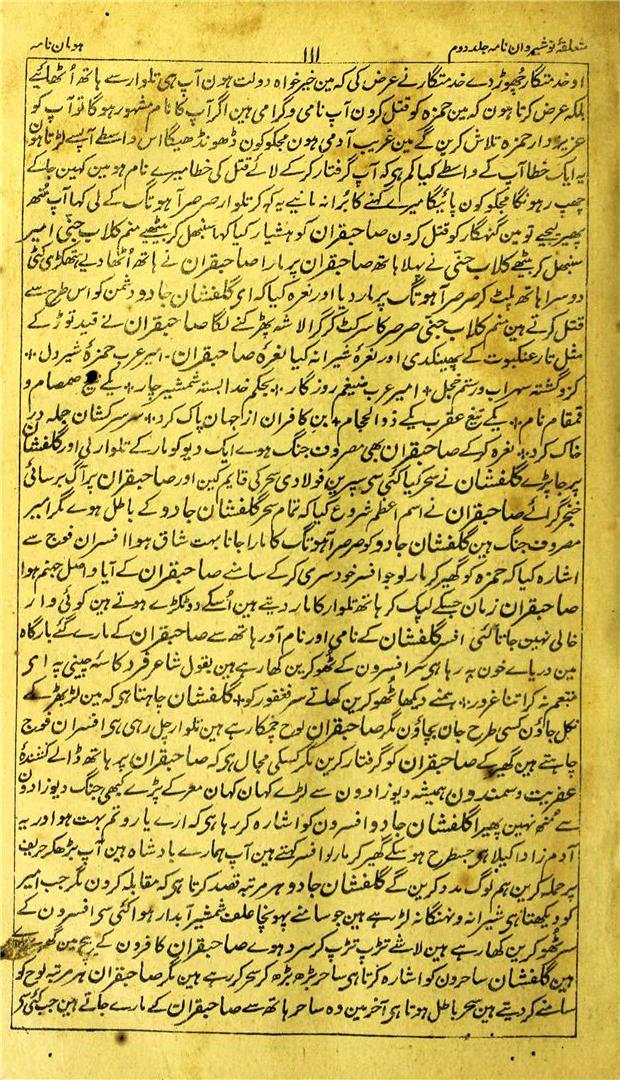 متعلقۂ نوشیروان نامہ جلد دوم ااا ہومان نامہ
او خدمتگار چھوڑ دے خدمتگار نے عرض کی کہ مین خیر خواہ دولت ہون آپ ہی تلوار سے ہاتھ اُٹھائیے
بلکہ عرض کرتا ہون کہ مین حمزہ کو قتل کرون آپ نامی و گرامی ہین اگر آپ کا نام مشہور ہو گا تو آپ کو
عزیز و وار حمزہ تلاش کرین گے مین غریب آدمی ہون مجکو کون ڈھونڈھیگا اس واسطے آپ سے لڑتا ہون
یہ ایک خطا آپ کے واسطے کیا کم ہی کہ آپ گرفتار کر کے لائے قتل کی خطا میرے نام ہو مین کہین جا کے
چھپ رہونگا مجکو کون پائیگا میرے کہنے کا بُرا نہ مانیے یہ کہہ کر تلوار صرصر آہو تگ کے لی کہا آپ مُنھ
پھیر لیجیے تو مین گنہگار کو قتل کرون صاحبقران کو ہشیار کیا کہا سنبھل کر بیٹھیے منم کلاب جنّی امیر
سنبھل کر بیٹھے کلاب جنّی نے پہلا ہاتھ صاحبقران پر مارا صاحبقران نے ہاتھ اُٹھا دیے ہتھکڑی کٹی
دوسرا ہاتھ پلٹ کر صرصر آہو تگ پر مار دیا اور نعرہ کیا کہ ای گلفشان جادو دشمن کو اس طرح سے
قتل کرتے ہین منم کلاب جنّی صرصر کا سر کٹ کر گرا لاشہ پھڑکنے لگا صاحبقران نے قید توڑ کے
مثل تار عنکبوت کے پھینکدی اور نعرۂ شیرانہ کیا نعرۂ صاحبقران ۔ امیر عرب حمزۂ شیر دل ؞
کزو گشتہ سہراب و رستم خجل ؞ امیر عرب ضیغم روزگار ؞ بحکم خدا بستہ شمشیر چار ؞ یکے تیغ صمصام و
قمقام نام ؞ یکے تیغ عقرب یکے ذوالحجام ؞ بن کافران از جہان پاک کرد ؞ سر سرکشان جملہ در
خاک کرد ؞ نعرہ کر کے صاحبقران بھی مصروف جنگ ہوے ایک دیو کو مار کے تلوار لی اور گلفشان
پر جا پڑے گلفشان نے سحر کیا کئی سی سپرین فولادی سحر کی قایم کین اور صاحبقران پر آگ برسائی
خنجر گرائے صاحبقران نے اسم اعظم شروع کیا کہ تمام سحر گلفشان جادو کے باطل ہوے مگر امیر
مصروف جنگ ہین گلفشان جادو کو صرصر آہو تگ کا مارا جانا بہت شاق ہوا افسران فوج سے
اشارہ کیا کہ حمزہ کو گھیر کر مار لو جو افسر خود سری کر کے سامنے صاحبقران کے آیا واصل جہنم ہوا
صاحبقران زمان جسکے لپک کر ہاتھ تلوار کا مار دیتے ہین اُسکے دو ٹکڑے ہوتے ہین کوئی وار
خالی نہین جاتا کئی افسر گلفشان کے نامی اور نام آور ہاتھ سے صاحبقران کے مارے گئے بارگاہ
مین دریاے خون بہ رہا ہی سر افسرون کے ٹھوکرین کھا رہے ہین بقول شاعر فرد کاسۂ چینی پہ ای
منعم نہ کر اتنا غرور ؞ ہمنے دیکھا ٹھوکرین کھاتے سر فغفور کو ؞ گلفشان چاہتا ہی کہ مین لڑ بھڑ کے
نکل جاؤن کسی طرح جان بچاؤن مگر صاحبقران لوح چمکا رہے ہین تلوار چل رہی ہی افسران فوج
چاہتے ہین گھیر کے صاحبقران کو گرفتار کرین مگر کسکی مجال ہی کہ صاحبقران پر ہاتھ ڈالے کشندۂ
عفریت و سمندون ہمیشہ دیوزادون سے لڑے کہان کہان معرکے پڑے کبھی جنگ دیوزادون
سے مُنھ نہین پھیرا گلفشان جادو افسرون کو اشارہ کر رہا ہی کہ ارے یارو تم بہت ہو اور یہ
آدم زاد اکیلا ہو جسطرح ہو سکے گھیر کر مار لو افسر کہتے ہین آپ ہمارے بادشاہ ہین آپ بڑھکر حریف
پر حملہ کرین ہم لوگ مدد کرین گے گلفشان جادو ہر مرتبہ قصد کرتا ہی کہ مقابلہ کرون مگر جب امیر
کو دیکھتا ہی شیرانہ و نہنگانہ لڑ رہے ہین جو سامنے پہونچا علف شمشیر آبدار ہوا کئی سی افسرون کے
سر ٹھوکرین کھا رہے ہین لاشے تڑپ تڑپ کر سرد ہوے صاحبقران کافرون کے بیچ مین گھرے
ہین گلفشان ساحرون کو اشارہ کرتا ہی ساحر بڑھ بڑھ کر سحر کر رہے ہین مگر صاحبقران ہر مرتبہ لوح کو
سامنے کر دیتے ہین سحر باطل ہوتا ہی آخر مین وہ ساحر ہاتھ سے صاحبقران کے مارے جاتے ہین جب کئی سی